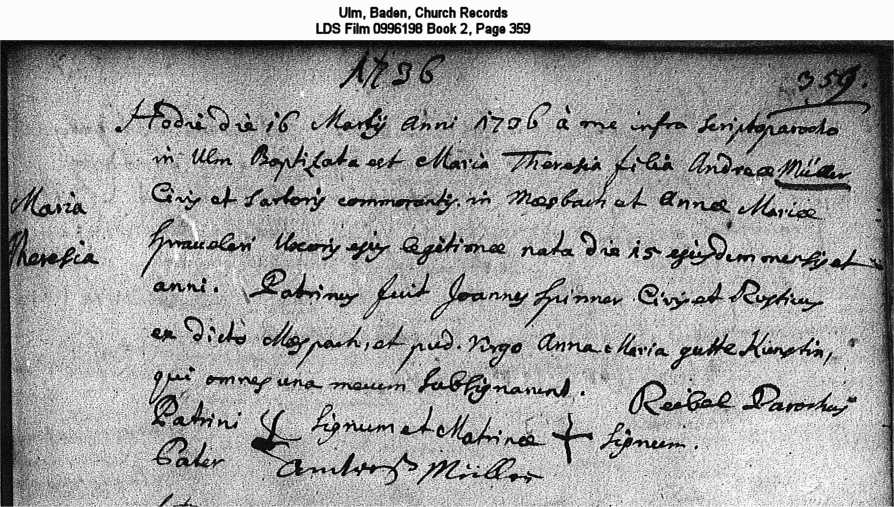 Ulm, Baden, Church Records
LDS Film 0996198 Book 2, Page 359
1736
359.
Hodie die 16 Martij Anni 1736 à me infra scripto parocho
in Ulm Baptizata est Maria Theresia filia Andreæ Müller
Maria
Civis et Sartoris commorantis in Mosbach et Annæ Mariæ
Theresia
Uxoris ejus legitimæ nata die 15 ejusdem mensis et
anni. Patrinus fuit Joannes Spinner Civis et Rusticus
ex dicto Mospach, et pud. Virgo Anna Maria Kunstin,
qui omnes una mecum subsignarunt.
Reibel Parochus
Patrini + Signum et Matrinæ + Signum.
Pater Andreas Müller